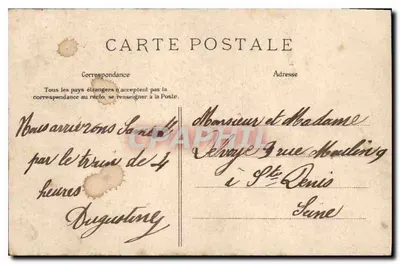 CARTE POSTALE
Correspondance
Adresse
Tous les pays étrangers n'acceptent pas la
correspondance au recto, se renseigner à la Poste.
Nous arriverons Samedi
par le train de 4
heures
Dugustine
Monsieur et Madame
rue Moulin 9
à Ste Denis
Seine
CPAPHIL